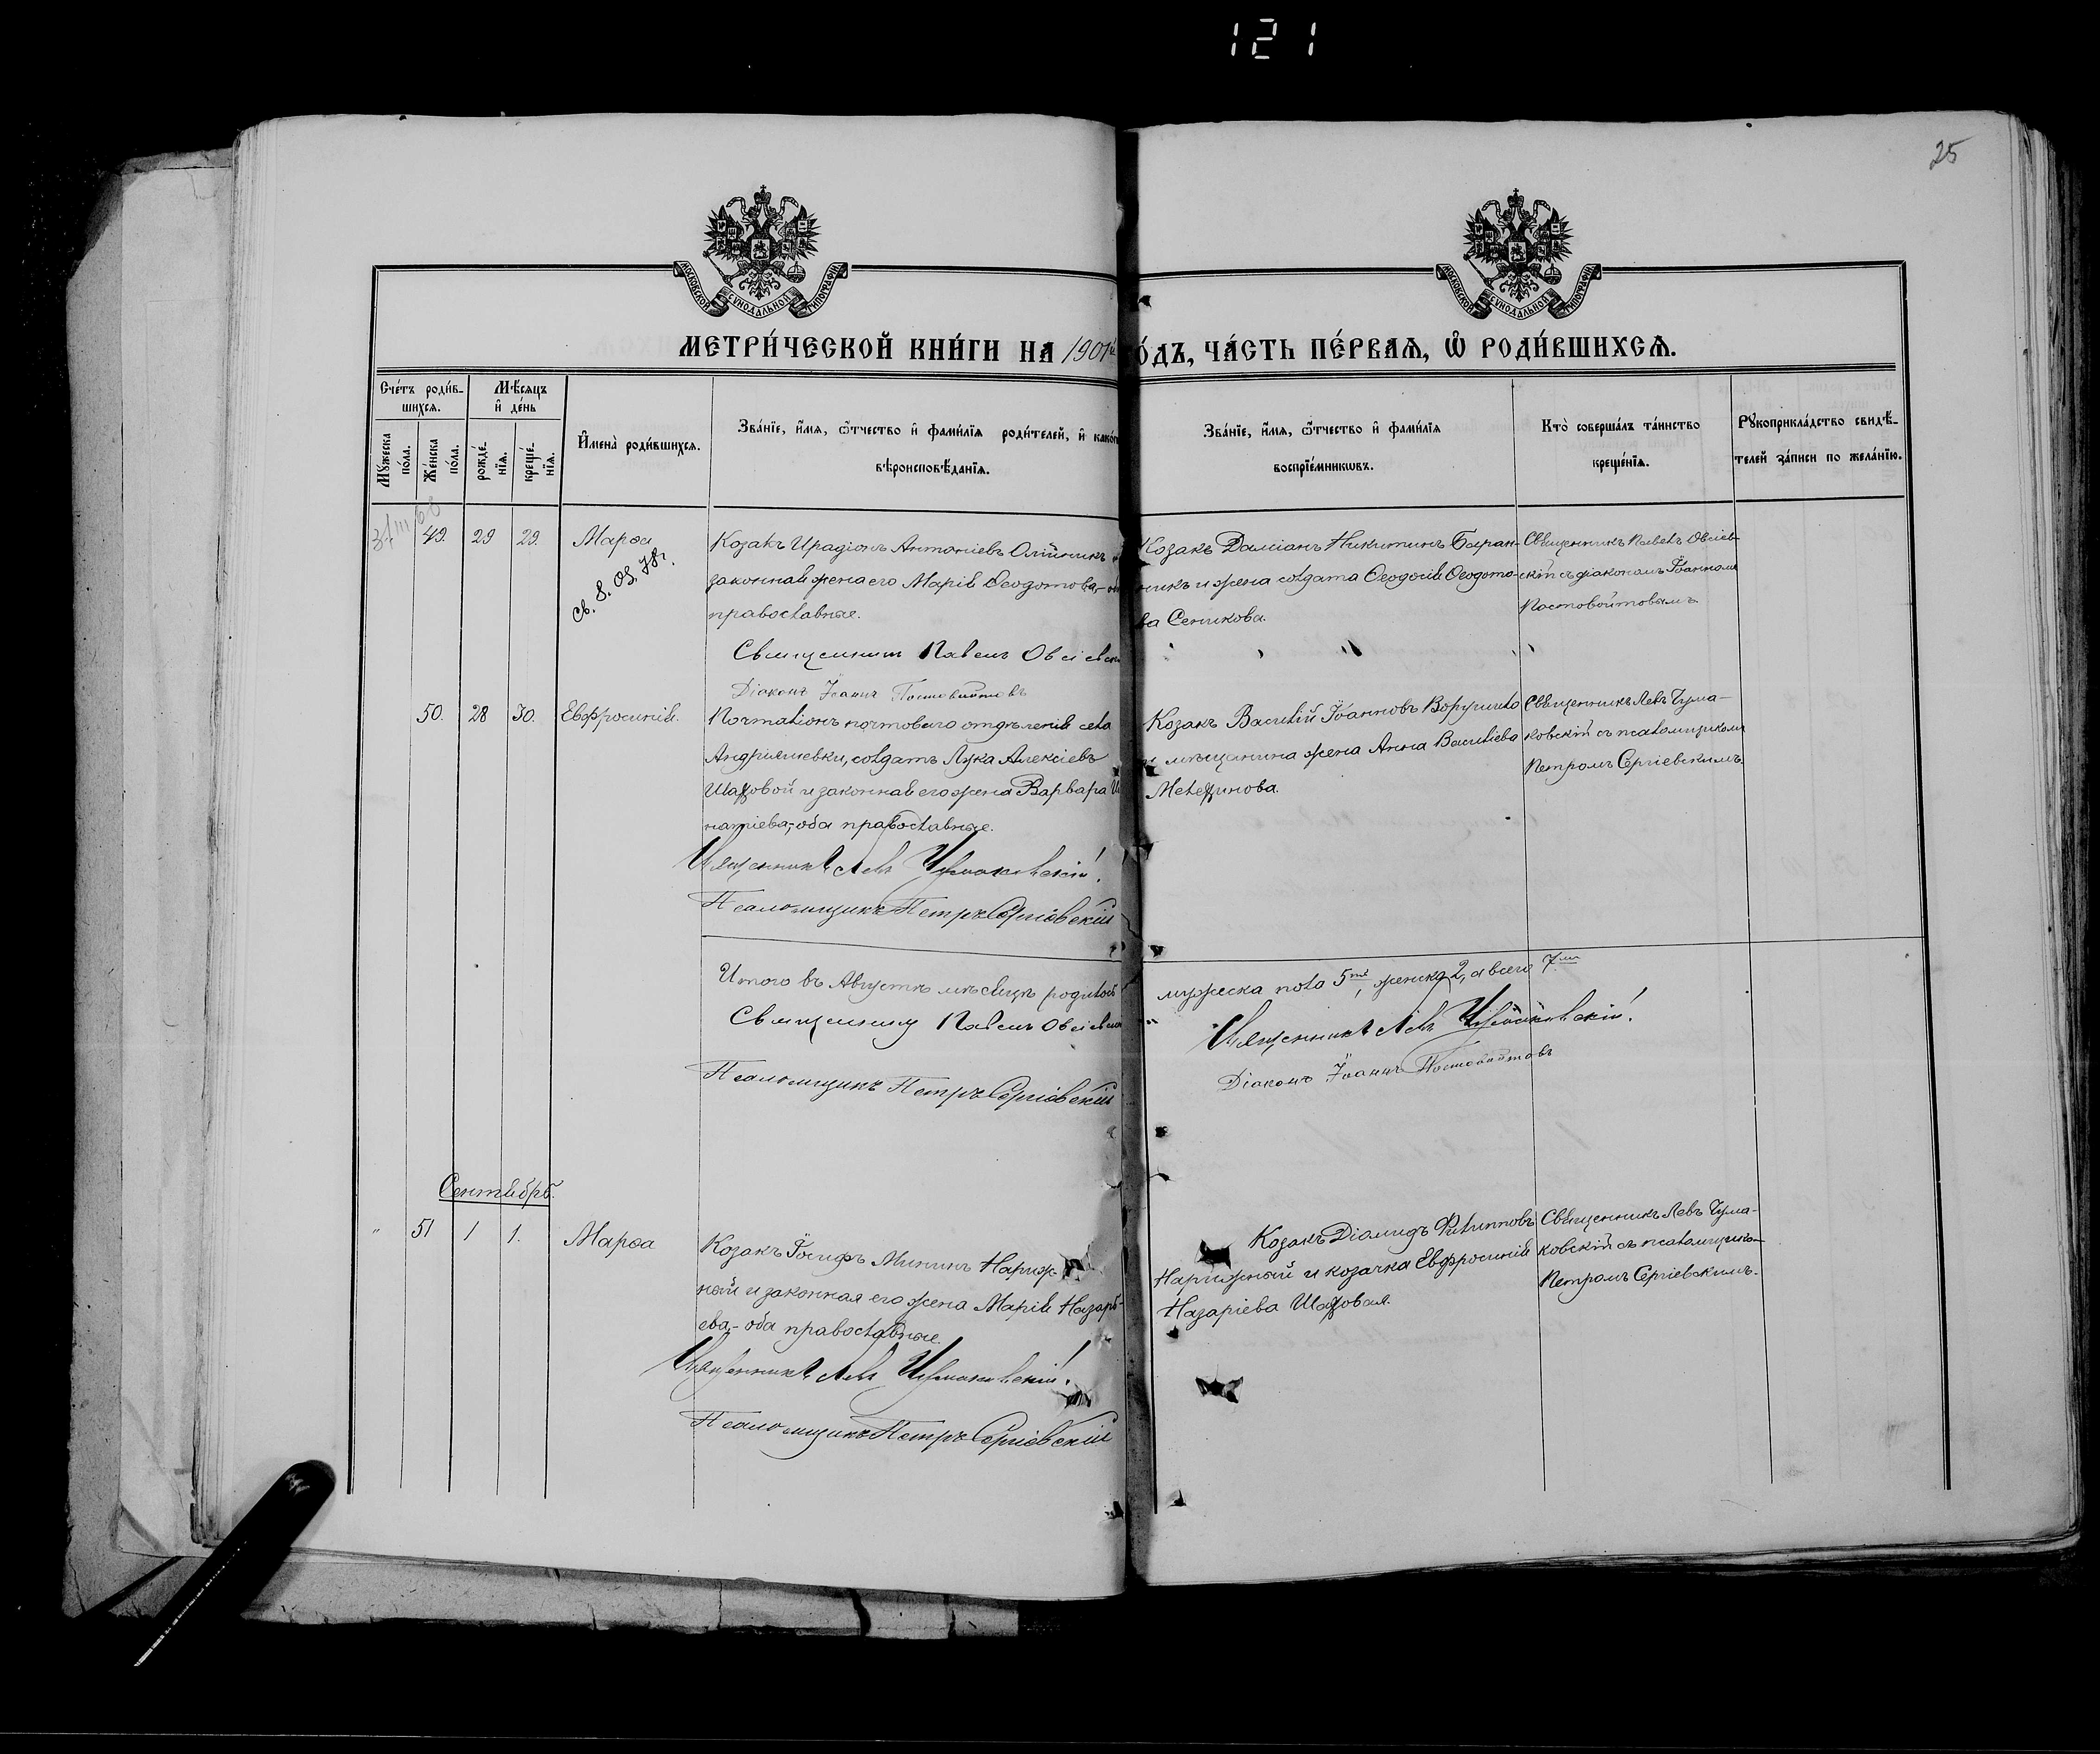 121
25
МОСКОВСКОЙ СѴНОДАЛЬНОЙ ТИПОГРАФІИ
МОСКОВСКОЙ СѴНОДАЛЬНОЙ ТИПОГРАФІИ
МЕТРИ́ЧЕСКОЙ КНИ́ГИ НА 1901й
О́ДЪ, ЧА́СТЬ ПЕ́РВАѦ, Ѽ РОДИ́ВШИХСѦ.
Сче́тъ роди́в-
шихсѧ.
Мѣ́сѧцъ
и҆ де́нь
Мꙋ́жеска по́ла.
Же́нска по́ла.
рожде́-нїѧ.
креще́-нїѧ.
И҆мена̀ роди́вшихсѧ.
Зва́нїе, и҆́мѧ, ѻ҆́тчество и҆ фами́лїѧ роди́телей, и҆ како́г
вѣроисповѣ́данїѧ.
Зва́нїе, и҆́мѧ, ѻ҆́тчество и҆ фами́лїѧ
воспрїе́мникѡвъ.
Кто̀ соверша́лъ та́инство
креще́нїѧ.
Рꙋкоприкла́дство свидѣ́-
телей за́писи по жела́нїю.
49. 29 29. Марѳа
Св. 8. 03. 78г.
Козакъ Иродіонъ Антоніевъ Олійникъ и
законная жена его Марія Ѳеодотова,- об
православные.
Священникъ Павелъ Овсіевск
Діаконъ Іоаннъ Постовойтовъ
Козакъ Даміанъ Никитинъ Баран-
никъ и жена солдата Ѳеодосія Ѳеодото-
ва Сеникова.
Священникъ Павелъ Овсіев-
скій съ діакономъ Іоанномъ
Постовойтовымъ
50. 28 30. Евфросинія.
Почталіонъ почтоваго отдѣленія села
Андріяшевки, солдатъ Лука Алексіевъ
Шаповой и законная его жена Варвара И
натіева,-оба православные.
Священникъ Левъ Чумаковскій!
Псаломщикъ Петръ Сергіевскій
Козакъ Василій Іоанновъ
и мѣщанина жена Анна Василіева
Священникъ Левъ Чума-
ковскій съ псаломщикомъ
Петромъ Сергіевскимъ
Итого въ Августѣ мѣсяцѣ родилось
мужеска пола 5ть, женска 2, а всего 7мь
Священникъ Павелъ Овсіевск
Священникъ Левъ Чумаковскій!
Псаломщикъ Петръ Сергіевскій
Діаконъ Іоаннъ Постовойтовъ
Сентябрь.
" 51 1 1. Марѳа
Козакъ Іосифъ Мининъ Нариж-
ный и законная его жена Марія Назарі-
ева,- оба православные.
Священникъ Левъ Чумаковскій!
Псаломщикъ Петръ Сергіевскій
Козакъ Діомидъ Филипповъ
Нарижный и козачка Евфросинія
Назаріева Шаповая.
Священникъ Левъ Чума-
ковскій съ псаломщико-
Петромъ Сергіевскимъ.